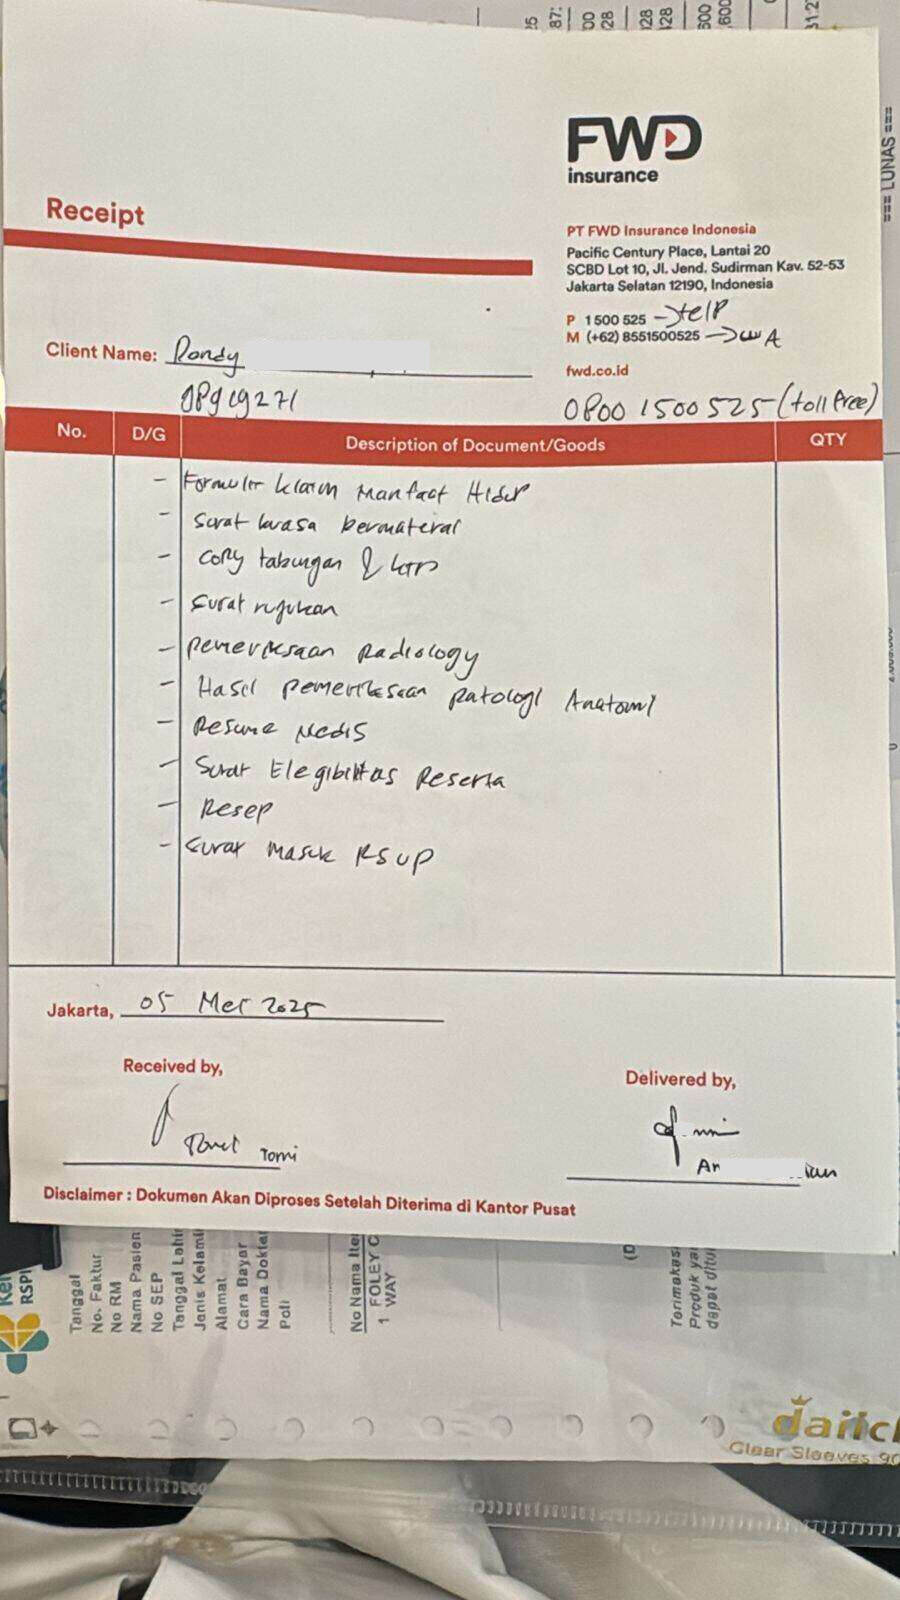 FWD
insurance
Receipt
PT FWD Insurance Indonesia
Pacific Century Place, Lantai 20
SCBD Lot 10, Jl. Jend. Sudirman Kav. 52-53
Jakarta Selatan 12190, Indonesia
P 1 500 525 → telp
M (+62) 8551500525 → WA
fwd.co.id
0800 1500 525 (toll free)
Client Name:
No. D/G Description of Document/Goods QTY
- Formulir klaim Manfaat Hidup
- Surat kuasa bermaterai
- Copy tabungan & KTP
- Surat rujukan
- Pemeriksaan Radiology
- Hasil pemeriksaan patologi Anatomi
- Resume Medis
- Surat Elegibilitas Peserta
- Resep
- Surat Masuk RSUP
Jakarta, 05 Mei 2025
Received by,
Tomi
Delivered by,
Disclaimer : Dokumen Akan Diproses Setelah Diterima di Kantor Pusat
=== LUNAS ===
RSPI
Tanggal
No. Faktur
No RM
Nama Pasien
No SEP
Tanggal Lahir
Jenis Kelami
Alamat
Cara Bayar
Nama Dokter
Poli
No Nama Ite
FOLEY C
1 WAY
Terimakas
Produk ya
dapat ditu
daiic
Clear Sleeves